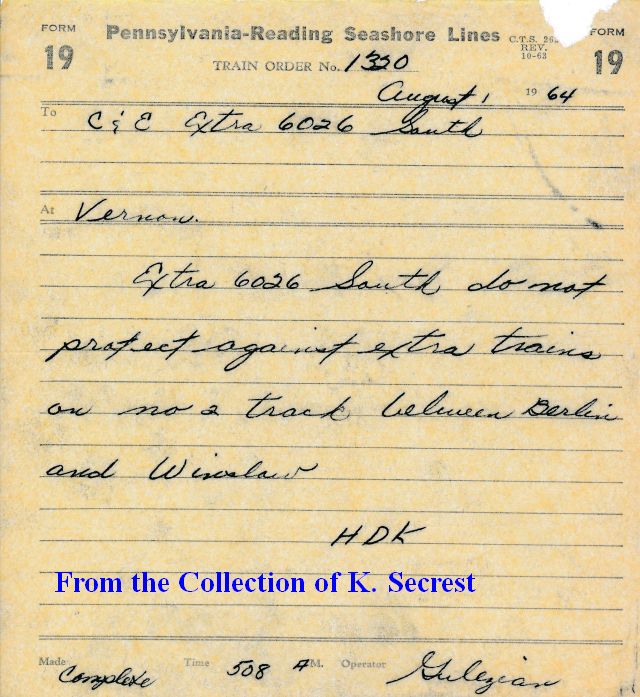 FORM 19 Pennsylvania-Reading Seashore Lines C.T.S. REV. 10-63 FORM 19
TRAIN ORDER No. 1320
August 1 1964
To C & E Extra 6026 South
At Vernon.
Extra 6026 South do not
protect against extra trains
on no 2 track between Berlin
and Winslow
HDK
From the Collection of K. Secrest
Made Complete Time 508 A M. Operator Gulezian